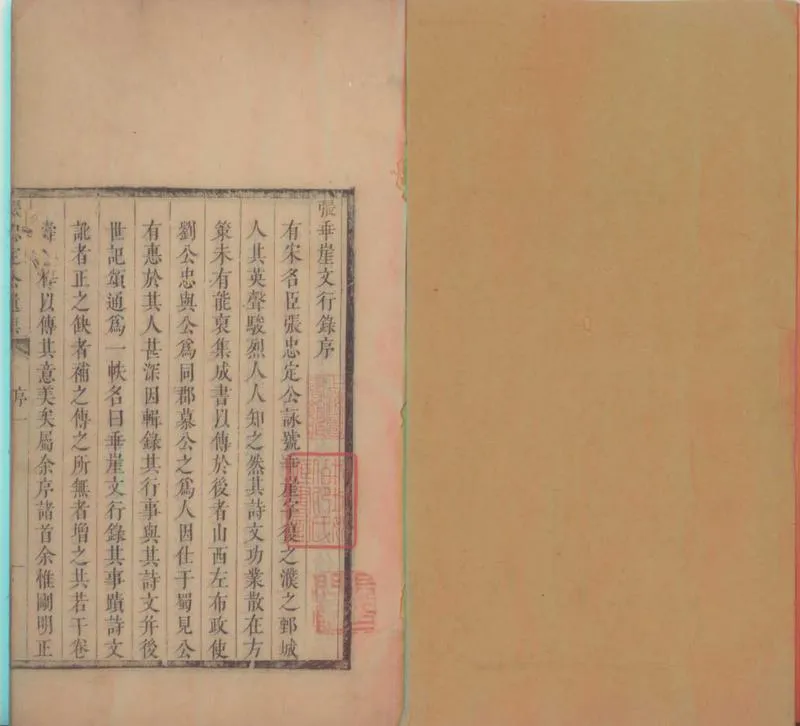 張乖崖文行錄序
有宋名臣張忠定公詠號乖崖字復之濮之鄄城
人其英聲駿烈人人知之然其詩文功業散在方
策未有能裒集成書以傳於後者山西左布政使
劉公忠與公爲同郡慕公之爲人因仕于蜀見公
有惠於其人甚深因輯錄其行事與其詩文并後
世記頌通爲一帙名曰乖崖文行錄其事蹟詩文
訛者正之缺者補之傳之所無者增之共若干卷
壽以傳其意美矣屬余序諸首余惟剛明正
忠定公遺集
序
一